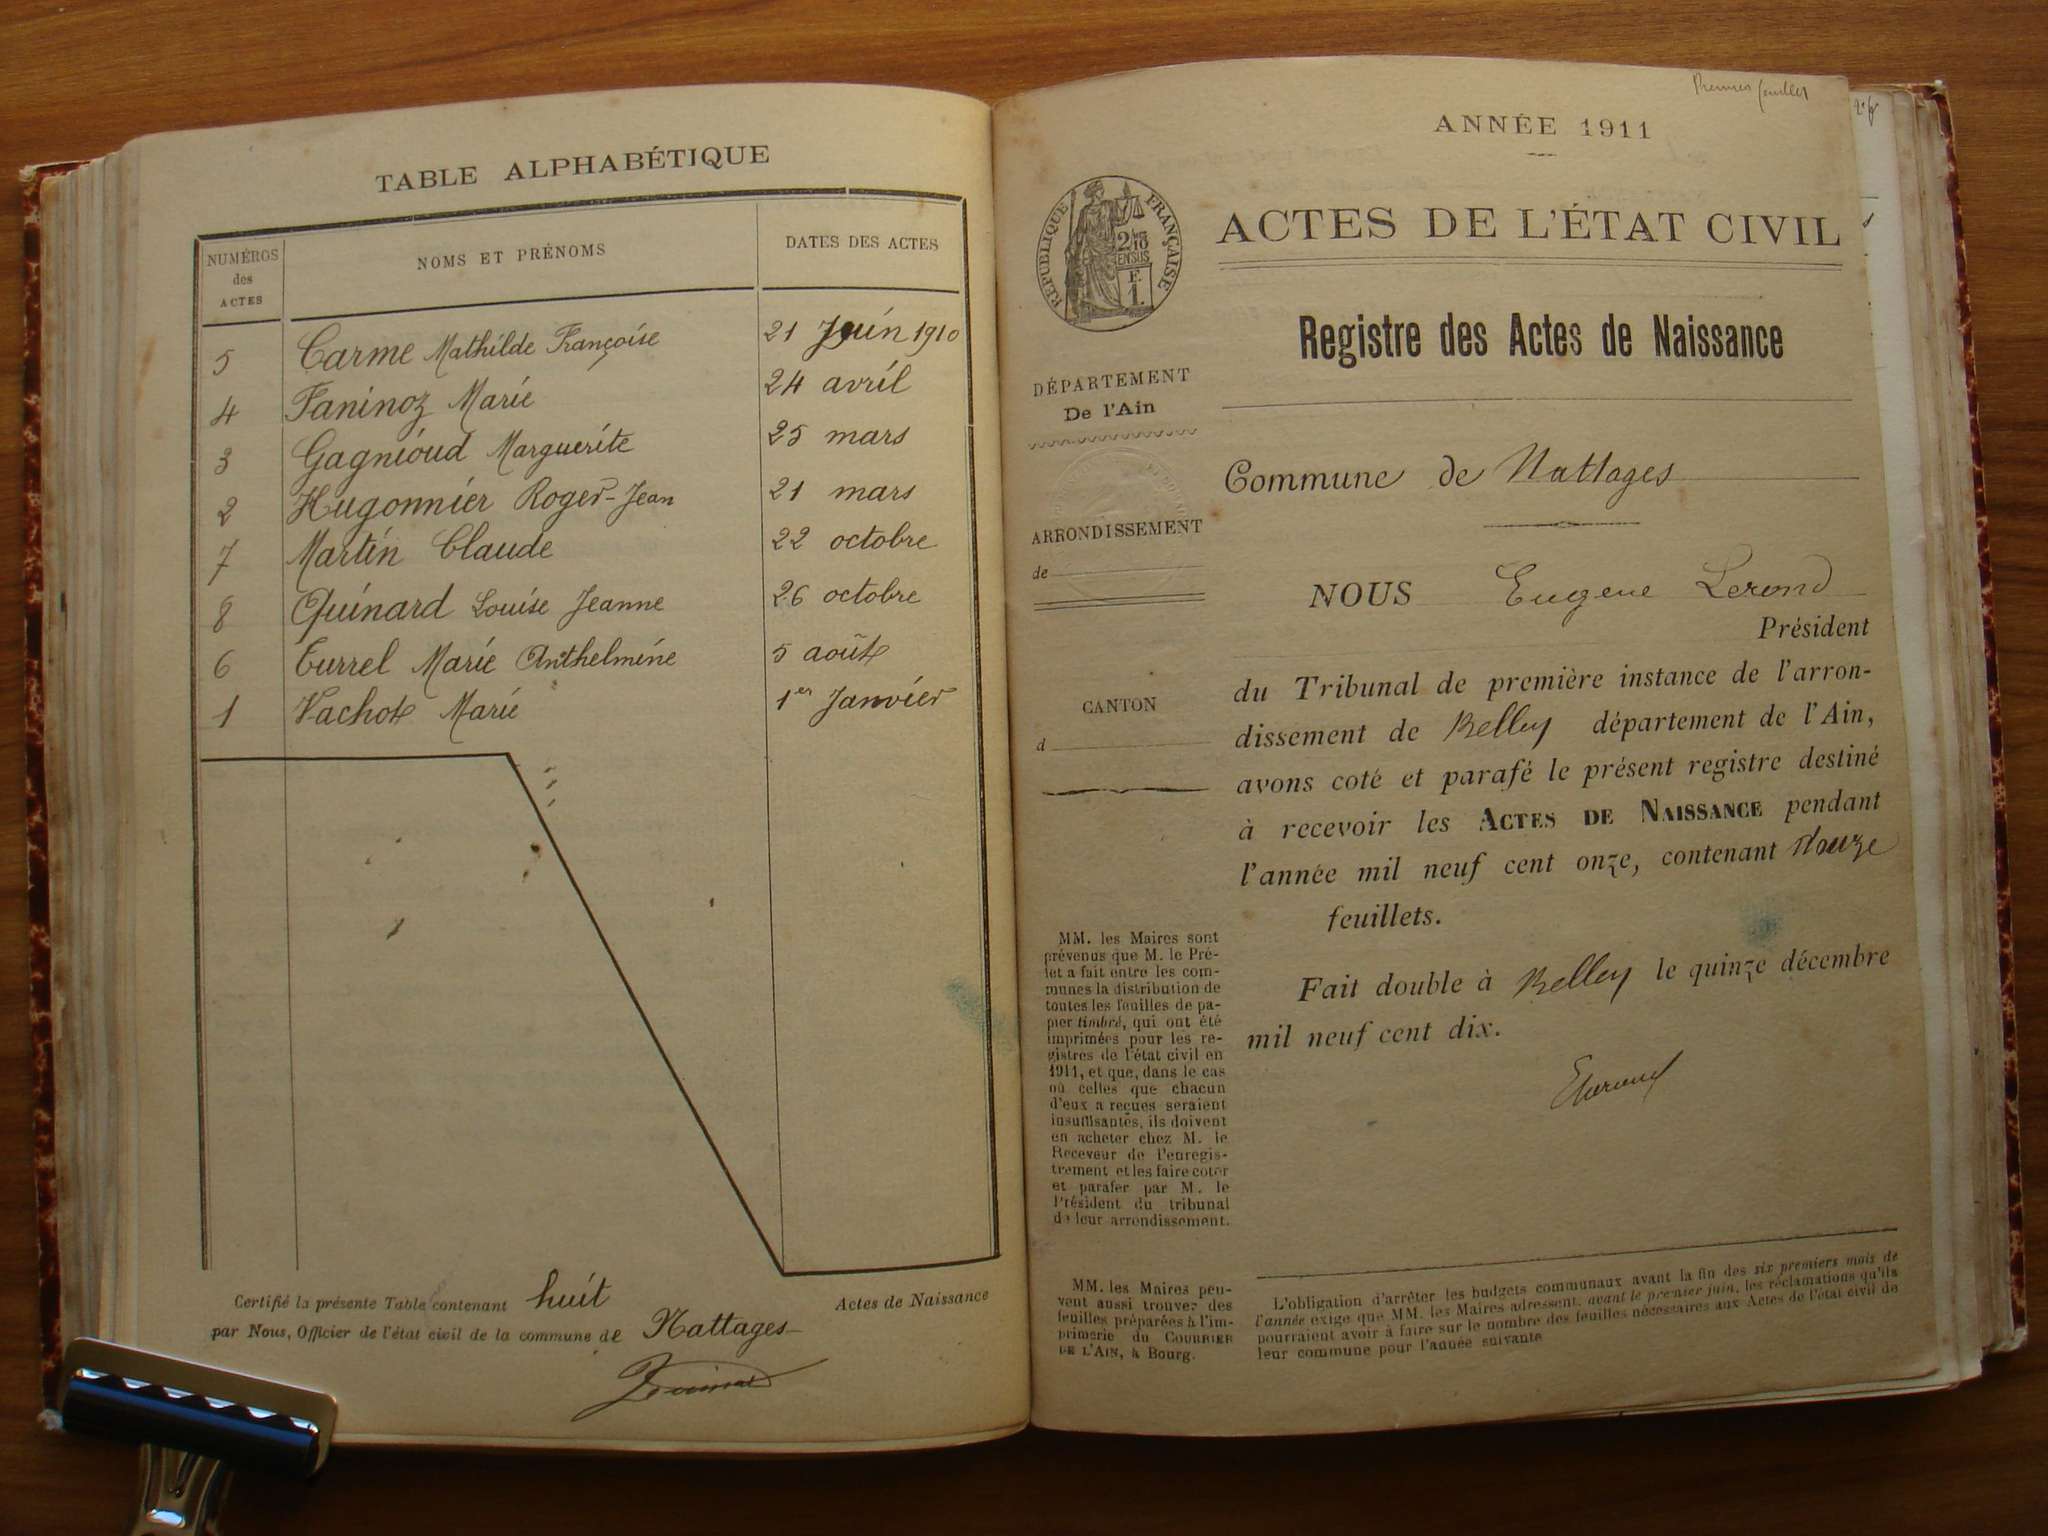 TABLE ALPHABÉTIQUE
NUMÉROS des ACTES NOMS ET PRÉNOMS DATES DES ACTES
5 Carme Mathilde Françoise 21 Juin 1910
4 Faninoz Marie 24 avril
3 Gagnioud Marguerite 25 mars
2 Hugonnier Roger-Jean 21 mars
7 Martin Claude 22 octobre
8 Quinard Louise Jeanne 26 octobre
6 Turrel Marie Anthelmine 5 août
1 Vachot Marie 1er Janvier
Certifié la présente Table contenant huit Actes de Naissance
par Nous, Officier de l'état civil de la commune de Nattages
Premier feuillet
ANNÉE 1911
RÉPUBLIQUE FRANÇAISE
ACTES DE L'ÉTAT CIVIL
Registre des Actes de Naissance
DÉPARTEMENT
De l'Ain
Commune de Nattages
ARRONDISSEMENT
de
NOUS Eugene Lerond
Président
du Tribunal de première instance de l'arron-
dissement de Belley département de l'Ain,
avons coté et parafé le présent registre destiné
à recevoir les ACTES DE NAISSANCE pendant
l'année mil neuf cent onze, contenant douze
feuillets.
CANTON
d
Fait double à Belley le quinze décembre
mil neuf cent dix.
MM. les Maires sont
prévenus que M. le Pré-
fet a fait entre les com-
munes la distribution de
toutes les feuilles de pa-
pier timbré, qui ont été
imprimées pour les re-
gistres de l'état civil en
1911, et que, dans le cas
où celles que chacun
d'eux a reçues seraient
insuffisantes, ils doivent
en acheter chez M. le
Receveur de l'enregis-
trement et les faire coter
et parafer par M. le
Président du tribunal
de leur arrondissement.
MM. les Maires peu-
vent aussi trouver des
feuilles préparées à l'im-
primerie du COURRIER
DE L'AIN, à Bourg.
L'obligation d'arrêter les budgets communaux avant la fin des six premiers mois de
l'année exige que MM. les Maires adressent, avant le premier juin, les réclamations qu'ils
pourraient avoir à faire sur le nombre des feuilles nécessaires aux Actes de l'état civil de
leur commune pour l'année suivante